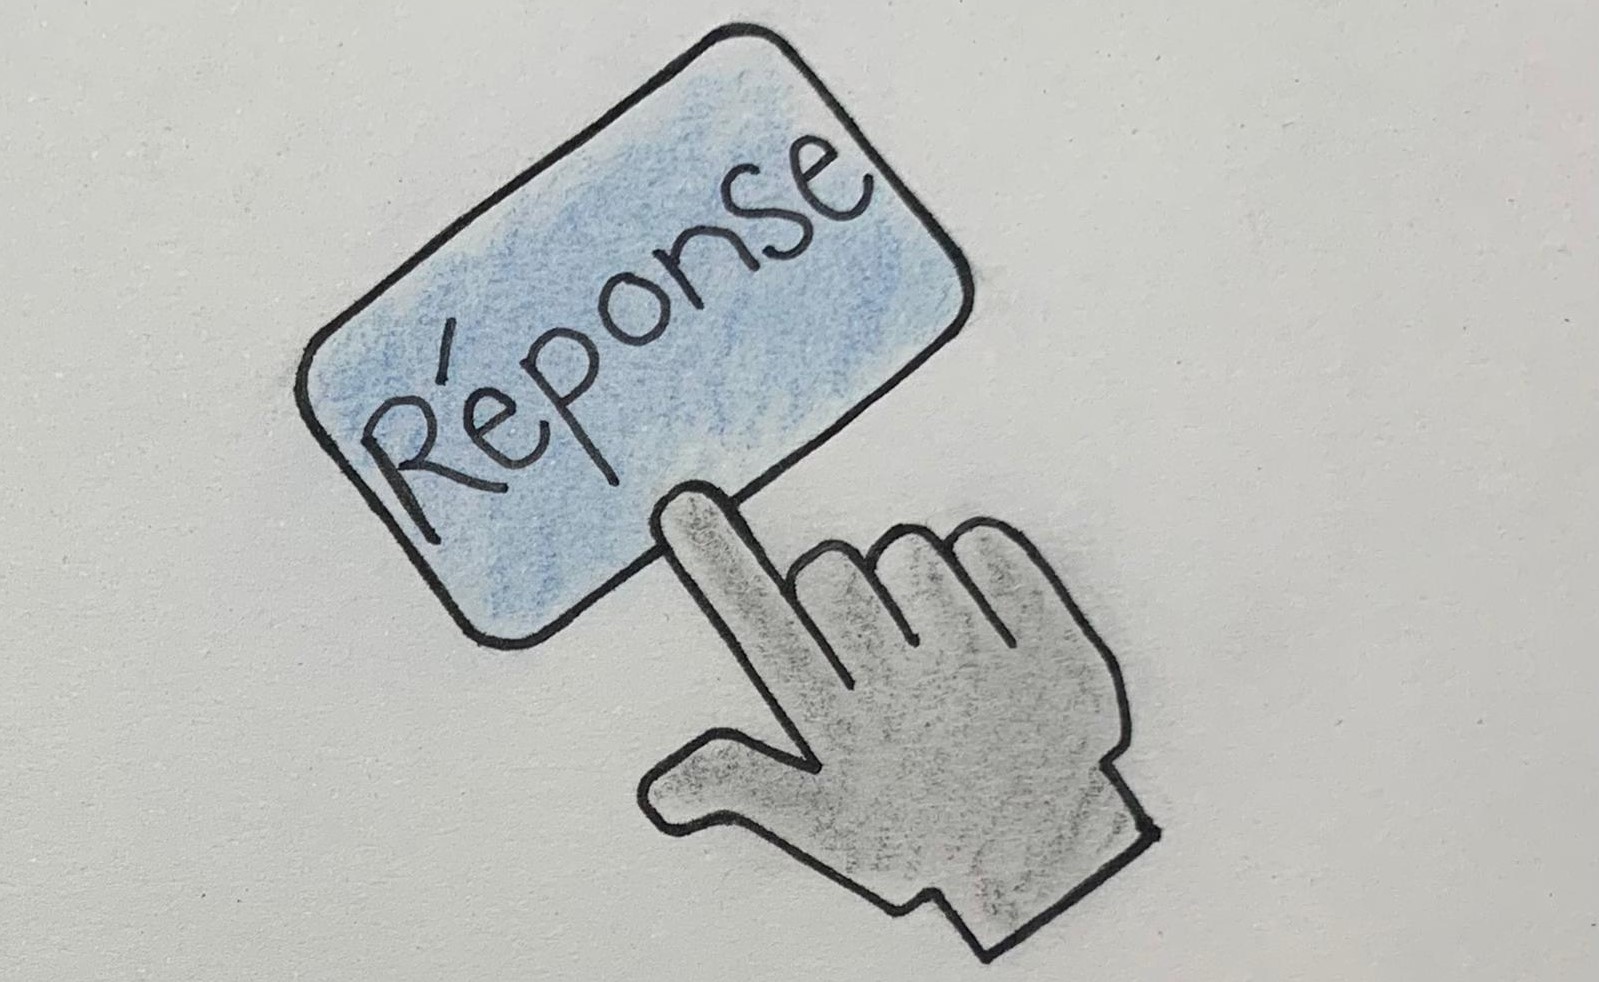 Réponse